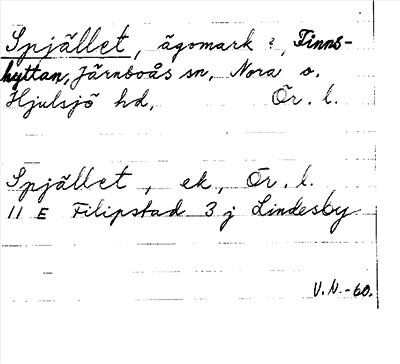 Spjället, ägomark ?, Finns-
hyttan, Järnboås sn, Nora o.
Hjulsjö hd, Ör. l.
Spjället, ek, Ör. l.
11 E Filipstad 3 j Lindesby
V. N. -60.